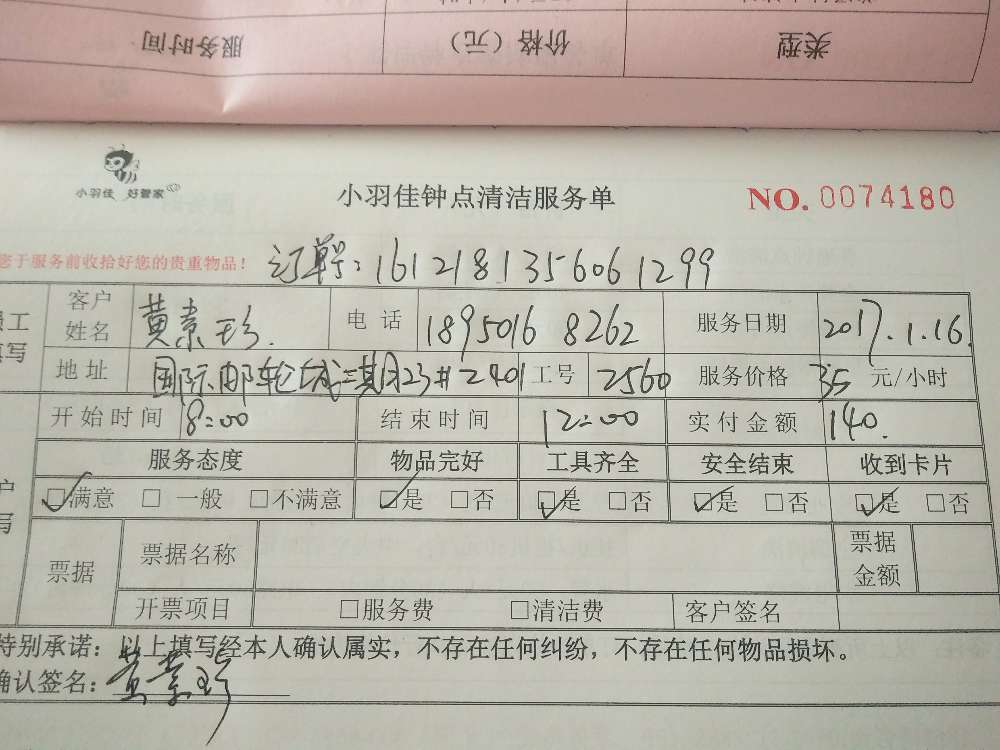 服务时间 价格（元） 类型
小羽佳 好管家
小羽佳钟点清洁服务单 NO. 0074180
您于服务前收拾好您的贵重物品！ 订单号: 161218135606 1299
员工填写 客户姓名 黄素珍 电话 1895016 8262 服务日期 2017.1.16.
地址 国际邮轮城三期23#2401 工号 2560 服务价格 35 元/小时
开始时间 8:00 结束时间 12:00 实付金额 140.
服务态度 物品完好 工具齐全 安全结束 收到卡片
户写 ☑满意 □一般 □不满意 ☑是 □否 ☑是 □否 ☑是 □否 ☑是 □否
票据 票据名称 票据金额
开票项目 □服务费 □清洁费 客户签名
特别承诺：以上填写经本人确认属实，不存在任何纠纷，不存在任何物品损坏。
确认签名：黄素珍